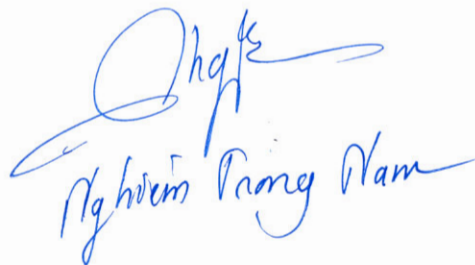 Nghiêm Trọng Nam